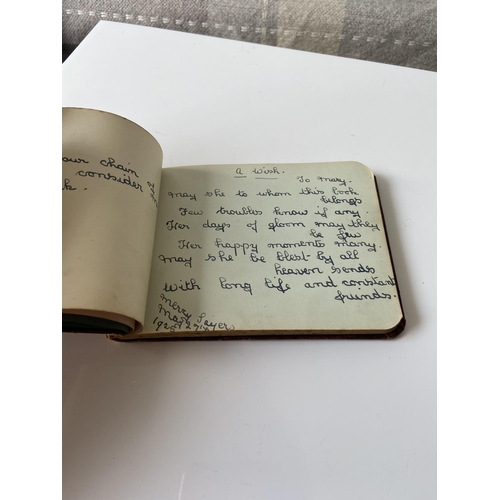 our chain
consider
k.
A Wish.
To Mary.
May she to whom this book
belongs
Few troubles know if any.
Her days of gloom may they
be few
Her happy moments many.
May she be blest by all
heaven sends
With long life and constant
friends.
Merry Sayers